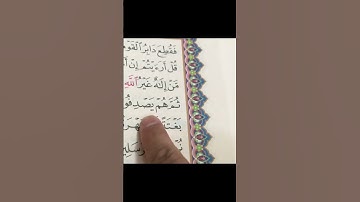 فَقُطِعَ دَابِرُ ٱلْقَوْمِ
قُلْ أَرَءَيْتُمْ إِنْ أَ
مَّنْ إِلَٰهٌ غَيْرُ ٱللَّهِ
ثُمَّ هُمْ يَصْدِفُو
بَغْتَةً